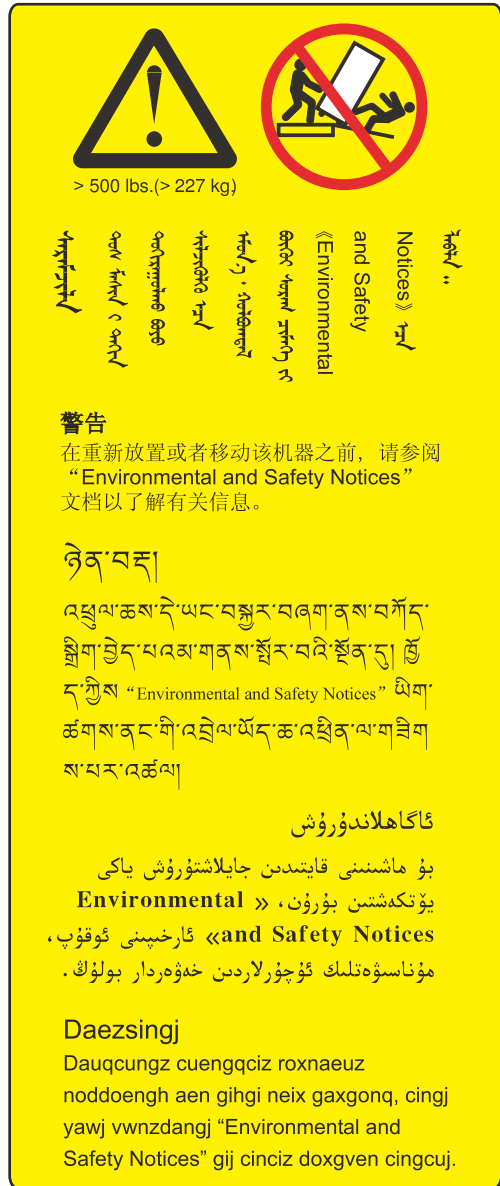 > 500 lbs.(> 227 kg)
ᠰᠡᠷᠡᠮᠵᠢᠯᠡᠯ
ᠲᠤᠰ ᠮᠠᠰᠢᠨ ᠢ ᠳᠠᠬᠢᠨ
ᠪᠤᠶᠤ
ᠰᠢᠯᠵᠢᠭᠦᠯᠬᠦ ᠡᠴᠡ
ᠡᠮᠦᠨ᠎ᠡ ᠂ ᠬᠣᠯᠪᠣᠭᠳᠠᠯ
ᠪᠦᠬᠦᠢ ᠰᠤᠷᠠᠭ ᠴᠢᠮᠡᠭᠡ ᠶᠢ
《Environmental
and Safety
Notices》 ᠡᠴᠡ
警告
在重新放置或者移动该机器之前，请参阅
“Environmental and Safety Notices”
文档以了解有关信息。
ཉེན་བརྡ།
འཕྲུལ་ཆས་དེ་ཡང་བསྐྱར་བཞག་ནས་བཀོད་
སྒྲིག་བྱེད་པའམ་གནས་སྤོར་བའི་སྔོན་དུ། ཁྱོ
ད་ཀྱིས “Environmental and Safety Notices” ཡིག་
ཚགས་ནང་གི་འབྲེལ་ཡོད་ཆ་འཕྲིན་ལ་གཟིག
ས་པར་འཚལ།
ئاگاھلاندۇرۇش
بۇ ماشىنىنى قايتىدىن جايلاشتۇرۇش ياكى
يۆتكەشتىن بۇرۇن، « Environmental
and Safety Notices» ئارخىپىنى ئوقۇپ،
مۇناسىۋەتلىك ئۇچۇرلاردىن خەۋەردار بولۇڭ.
Daezsingj
Dauqcungz cuengqciz roxnaeuz
noddoengh aen gihgi neix gaxgonq, cingj
yawj vwnzdangj “Environmental and
Safety Notices” gij cinciz doxgven cingcuj.